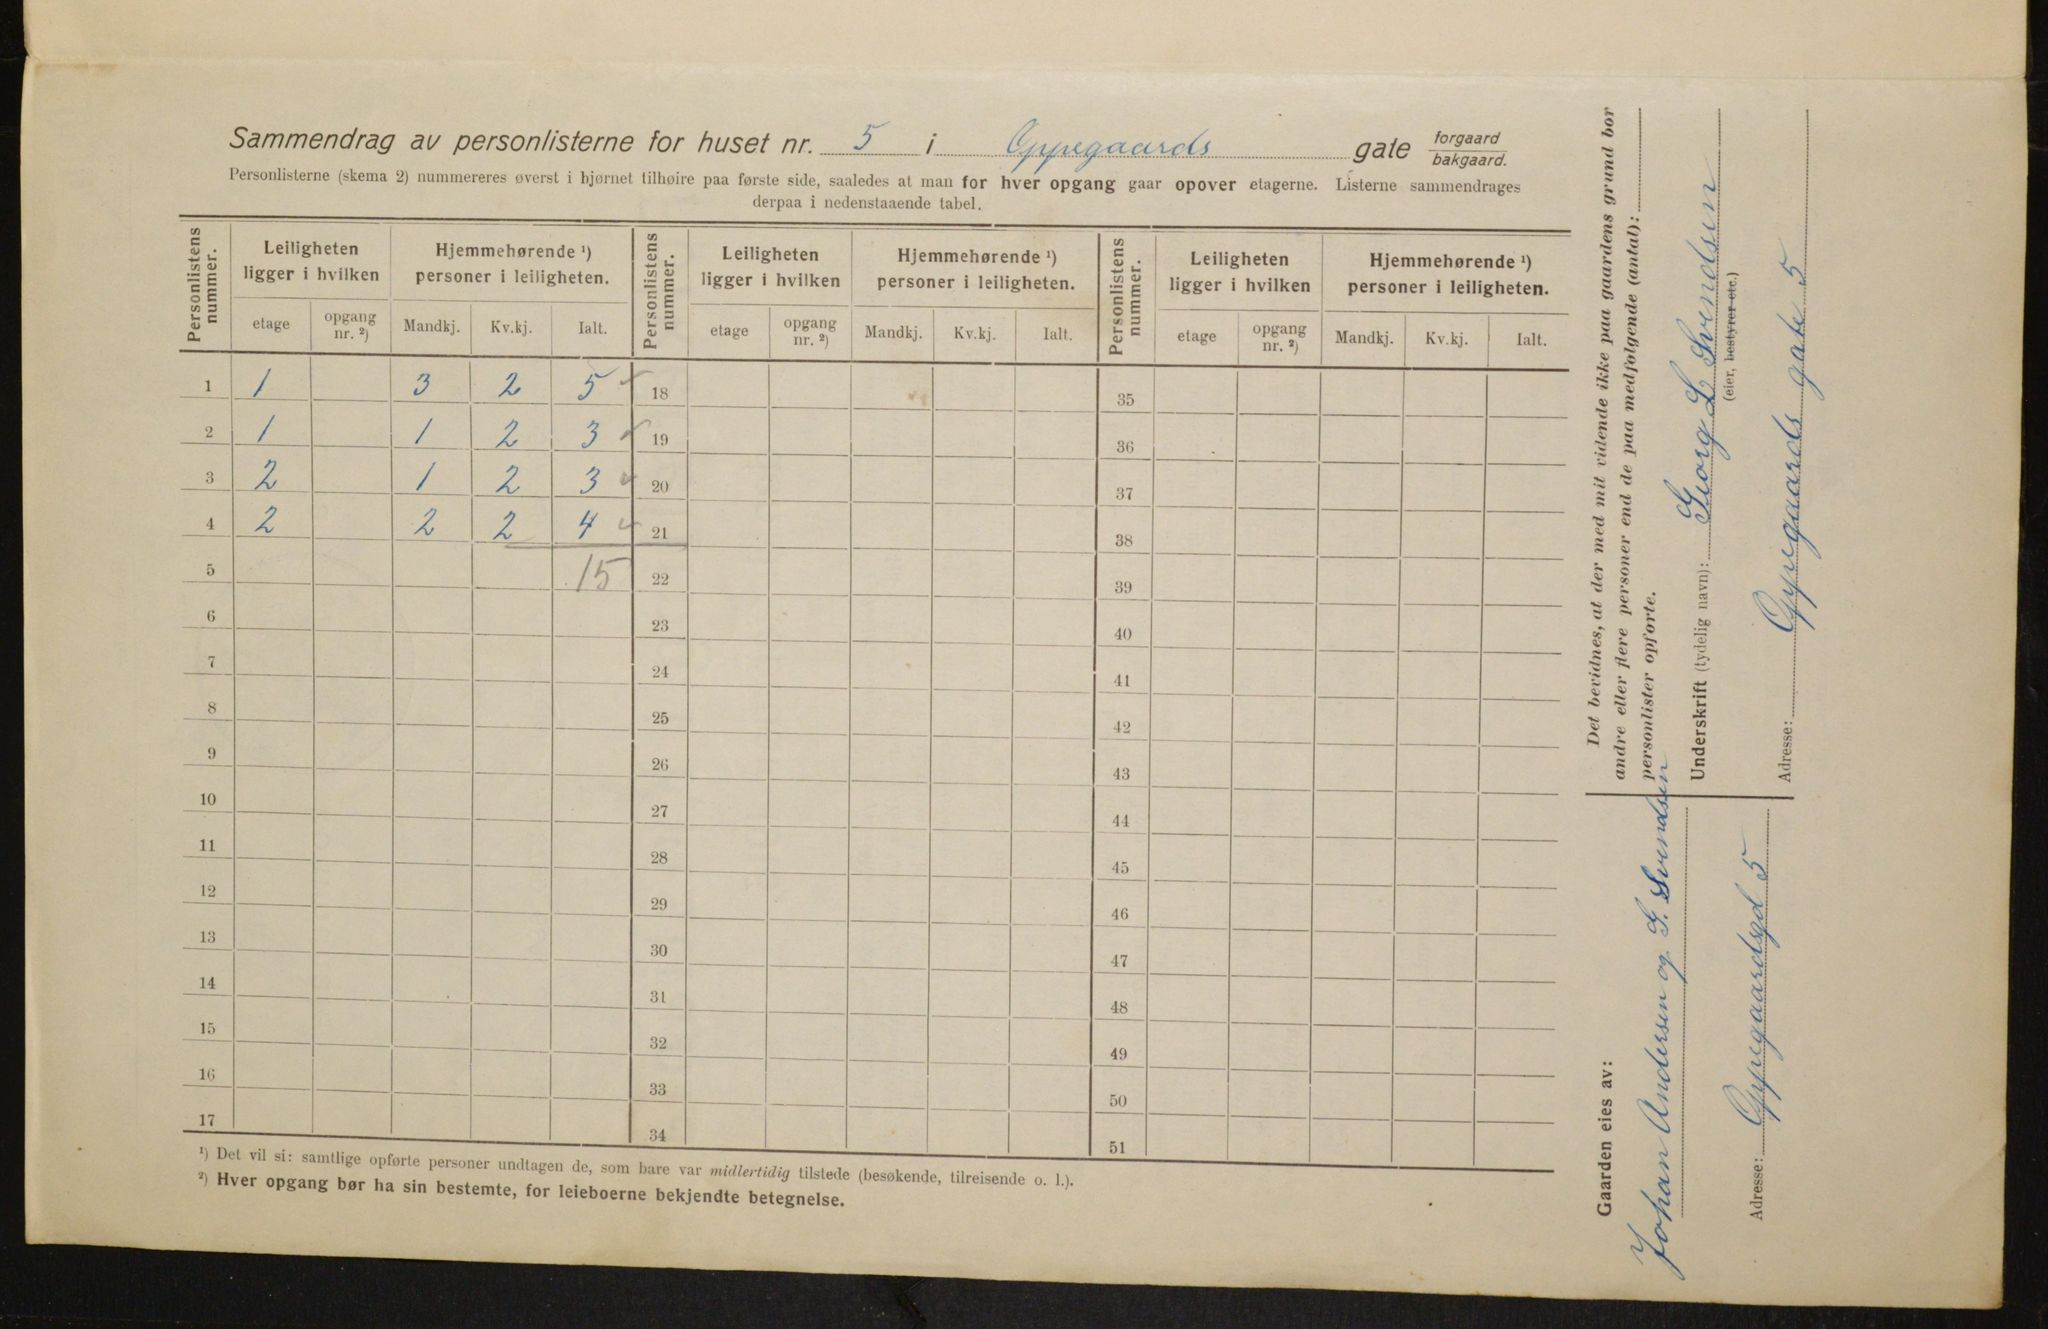 Sammendrag av personlisterne for huset nr. 5 i Oppegaards gate forgaard bakgaard.
Personlisterne (skema 2) nummereres øverst i hjørnet tilhøire paa første side, saaledes at man for hver opgang gaar opover etagerne. Listerne sammendrages
derpaa i nedenstaaende tabel.
Personlistens nummer. Leiligheten ligger i hvilken Hjemmehørende ¹) personer i leiligheten. Personlistens nummer. Leiligheten ligger i hvilken Hjemmehørende ¹) personer i leiligheten. Personlistens nummer. Leiligheten ligger i hvilken Hjemmehørende ¹) personer i leiligheten.
etage opgang nr. ²) Mandkj. Kv.kj. Ialt. etage opgang nr. ²) Mandkj. Kv.kj. Ialt. etage opgang nr. ²) Mandkj. Kv.kj. Ialt.
1 1 3 2 5 ✓ 18 35
2 1 1 2 3 ✓ 19 36
3 2 1 2 3 ✓ 20 37
4 2 2 2 4 ✓ 21 38
5 15 22 39
6 23 40
7 24 41
8 25 42
9 26 43
10 27 44
11 28 45
12 29 46
13 30 47
14 31 48
15 32 49
16 33 50
17 34 51
¹) Det vil si: samtlige opførte personer undtagen de, som bare var midlertidig tilstede (besøkende, tilreisende o. l.).
²) Hver opgang bør ha sin bestemte, for leieboerne bekjendte betegnelse.
Det bevidnes, at der med mit vidende ikke paa gaardens grund bor
andre eller flere personer end de paa medfølgende (antal):
personlister opførte.
Underskrift (tydelig navn): Georg L Svendsen
(eier, bestyrer etc.)
Adresse: Oppegaards gate 5
Gaarden eies av:
Johan Andersen og G. Svendsen
Adresse: Oppegaardsgd 5